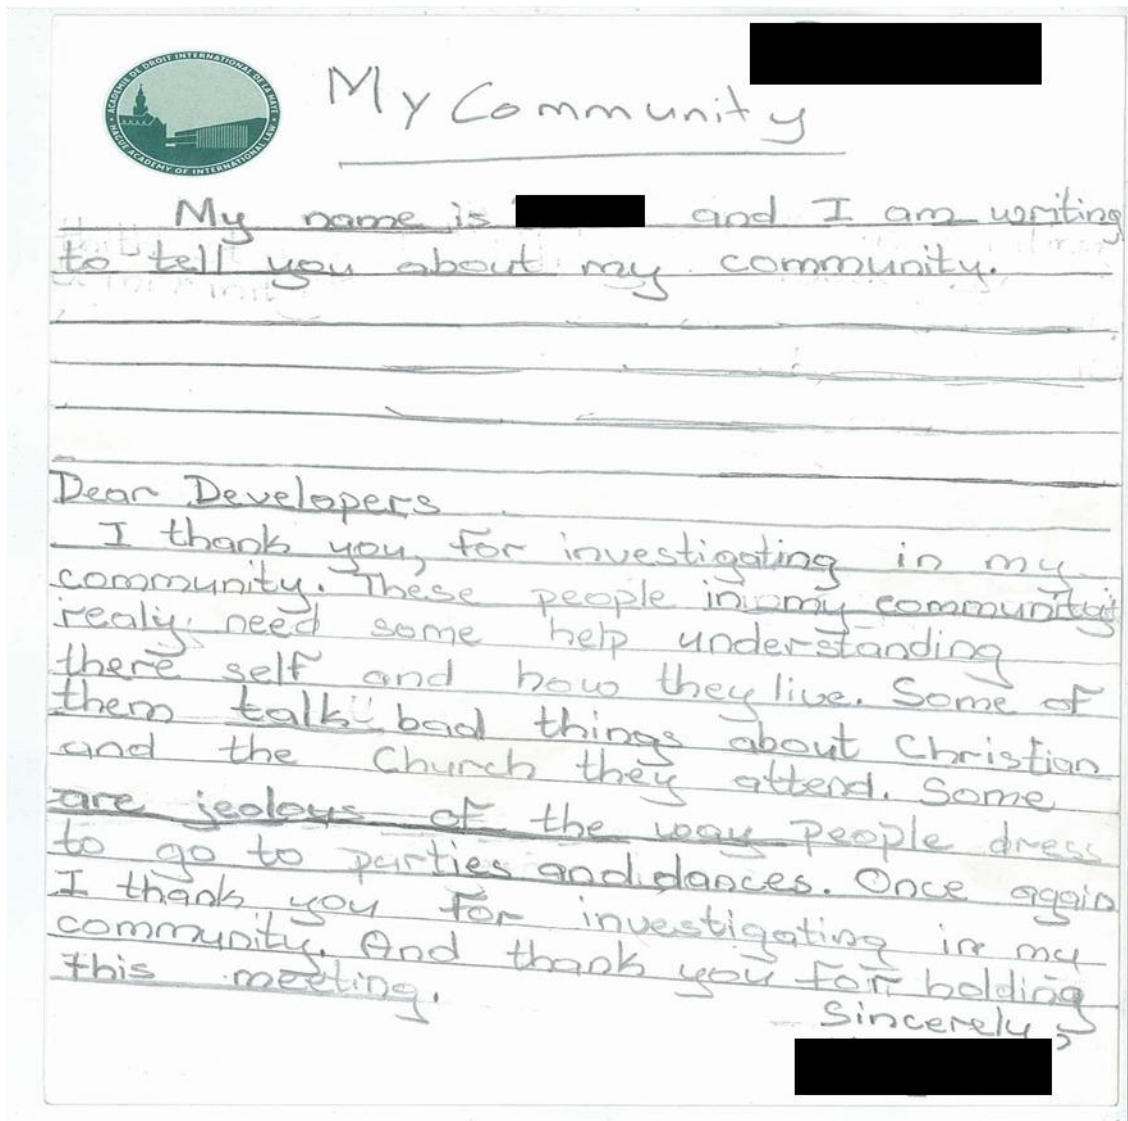 ACADÉMIE DE DROIT INTERNATIONAL DE LA HAYE
HAGUE ACADEMY OF INTERNATIONAL LAW
My Community
My name is and I am writing
to tell you about my community.
Dear Developers
I thank you, for investigating in my
community. These people in my community
realy need some help understanding
there self and how they live. Some of
them talk bad things about Christian
and the Church they attend. Some
are jealoys of the way people dress
to go to parties and dances. Once again
I thank you for investigating in my
community. And thank you for holding
this meeting.
Sincerely,